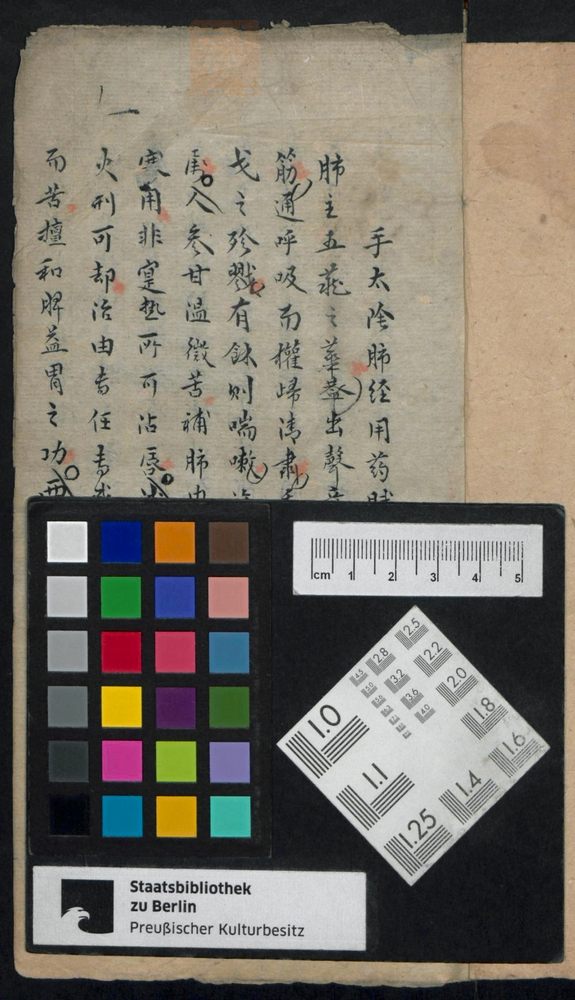 手太陰肺经用药
肺主五蔵之華盖出聲
筋通呼吸而權歸清肅
戈之殄戮有餘则喘嗽
人参甘温微苦補肺
寒用非寔热所可沾唇
火刑可却治由
而苦擅和脾益胃之功
cm 1 2 3 4 5
2.5
2.8 2.2
4.5 3.2 2.0
5.0 3.6 1.8
4.0 1.6
1.0
1.1 1.4
1.25
Staatsbibliothek
zu Berlin
Preußischer Kulturbesitz